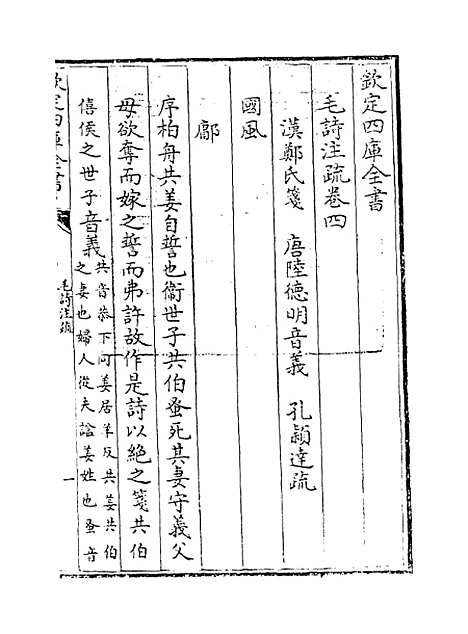 欽定四庫全書
毛詩注疏卷四
漢鄭氏箋　唐陸德明音義　孔穎達疏
國風
鄘
序柏舟共姜自誓也衞世子共伯蚤死其妻守義父
母欲奪而嫁之誓而弗許故作是詩以絶之箋共伯
僖侯之世子音義共音恭下同姜居羊反共姜共伯
之妻也婦人從夫諡姜姓也蚤音
欽定四庫全書
毛詩注疏
一